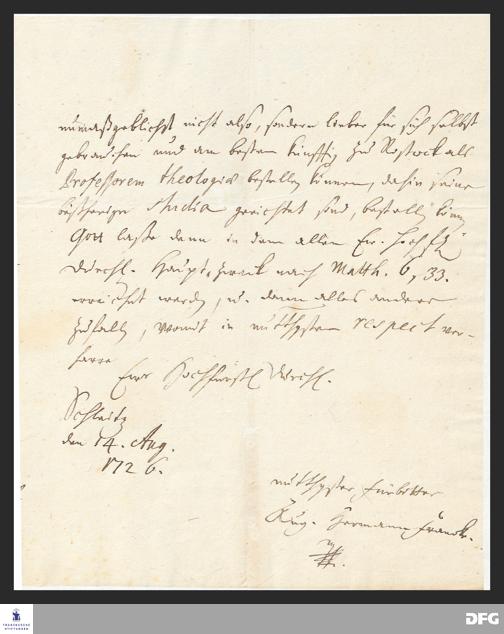 unmaßgeblichst nicht also, sondern lieber für sich selbst
gebrauchen und am besten künfftig zu Rostock als
Professorem theologiæ bestellen können, dahin seine
bißherige Studia gerichtet sind, bestellen könn
Gott laße denn in dem allen Ew. Hochfl
Durchl. Haupt-zweck nach Matth. 6, 33.
erreichet werden, u. dann alles andere
zufallen, womit in unterthgstem respect ver-
harre
Eurer Hochfürstl Durchl.
Schleitz
den 14. Aug.
1726.
unterthgster Fürbitter
Aug. Hermann Franck.
FRANCKESCHE STIFTUNGEN
DFG